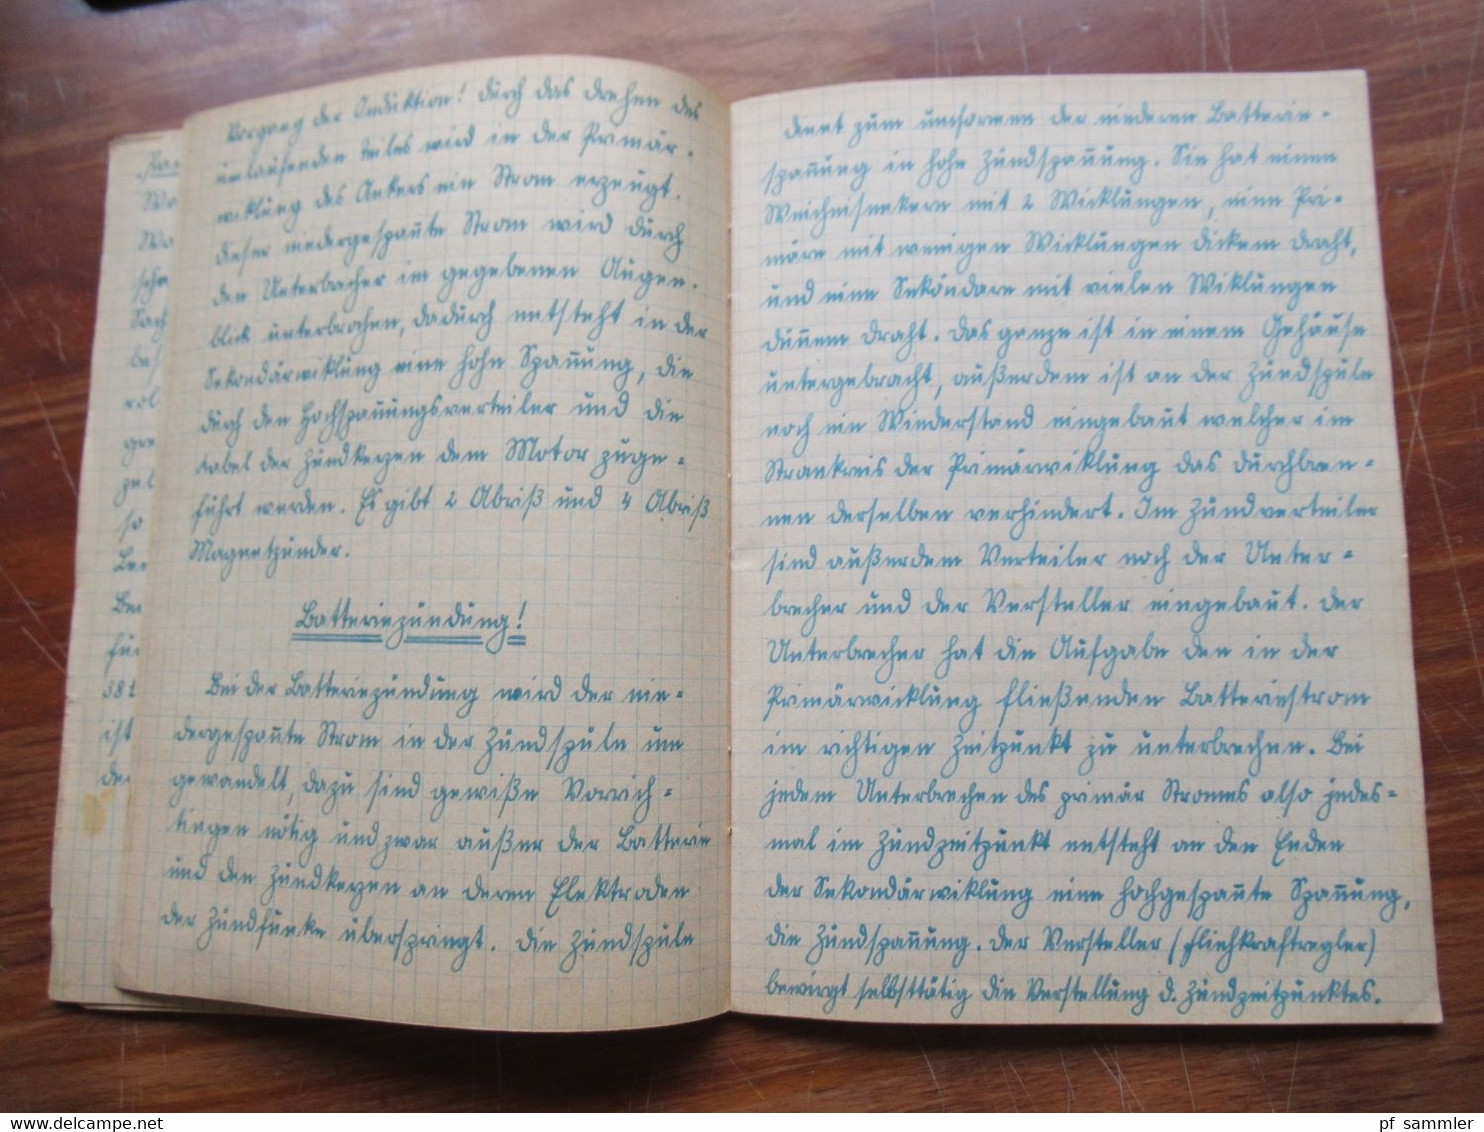 Vorgang der Induktion! durch das drehen des
umlaufenden teiles wird in der Primär-
wiklung des Ankers ein Strom erzeugt.
dieser niedergespañte Strom wird durch
den Unterbrecher im gegebenen Augen-
blick unterbrochen, dadurch entsteht in der
Sekondärwiklung eine hohe Spañung, die
durch den Hochspañungsverteiler und die
kabel der Zündkerzen dem Motor zuge-
führt werden. Es gibt 2 Abriß und 4 Abriß
Magnetzünder.
Batteriezündung!
Bei der Batteriezündung wird der nie-
dergespañte Strom in der Zündspule um
gewandelt, dazu sind gewiße Vorrich-
tungen nötig und zwar außer der Batterie
und den Zündkerzen an deren Elektroden
der Zündfunke überspringt. die Zündspule
dient zum umformen der niederen Batterie-
spañung in hohe Zündspañung. Sie hat einen
Weicheisenkern mit 2 Wicklungen, eine Pri-
märe mit wenigen Wicklungen dickem draht,
und eine Sekondäre mit vielen Wiklungen
düñem draht. das ganze ist in einem Gehäuse
untergebracht, außerdem ist an der Zündspule
noch ein Wiederstand eingebaut welcher im
Stromkreis der Primärwiklung das durchbren-
nen derselben verhindert. Im Zündverteiler
sind außerdem Verteiler noch der Unter-
brecher und der Versteller eingebaut. der
Unterbrecher hat die Aufgabe den in der
Primärwicklung fließenden Batteriestrom
im richtigen Zeitpunkt zu unterbrechen. Bei
jedem Unterbrechen des primär Stromes also jedes-
mal im Zündzeitpunkt entsteht an den Enden
der Sekondärwiklung eine hochgespañte Spañung,
die Zündspañung. der Versteller (fliehkraftregler)
bewirgt selbsttätig die Verstellung d. Zündzeitpunktes.
www.delcampe.net
pf_sammler